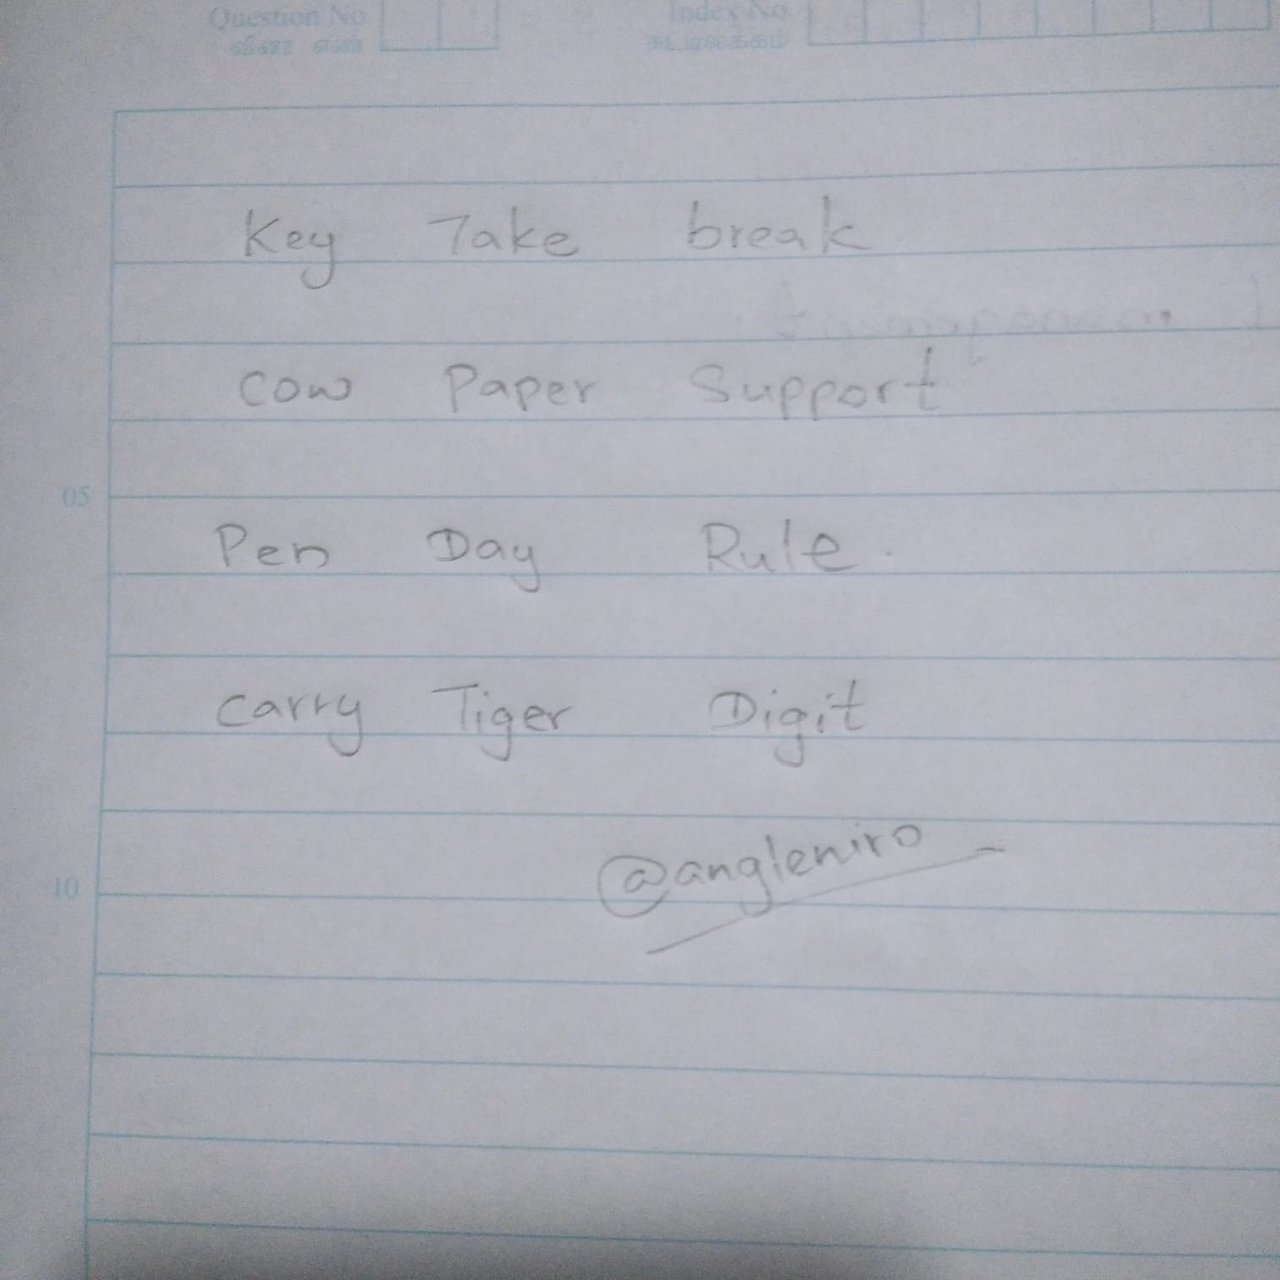 Question No Index No
Key Take break
Cow Paper Support
05
Pen Day Rule.
Carry Tiger Digit
@angleniro
10